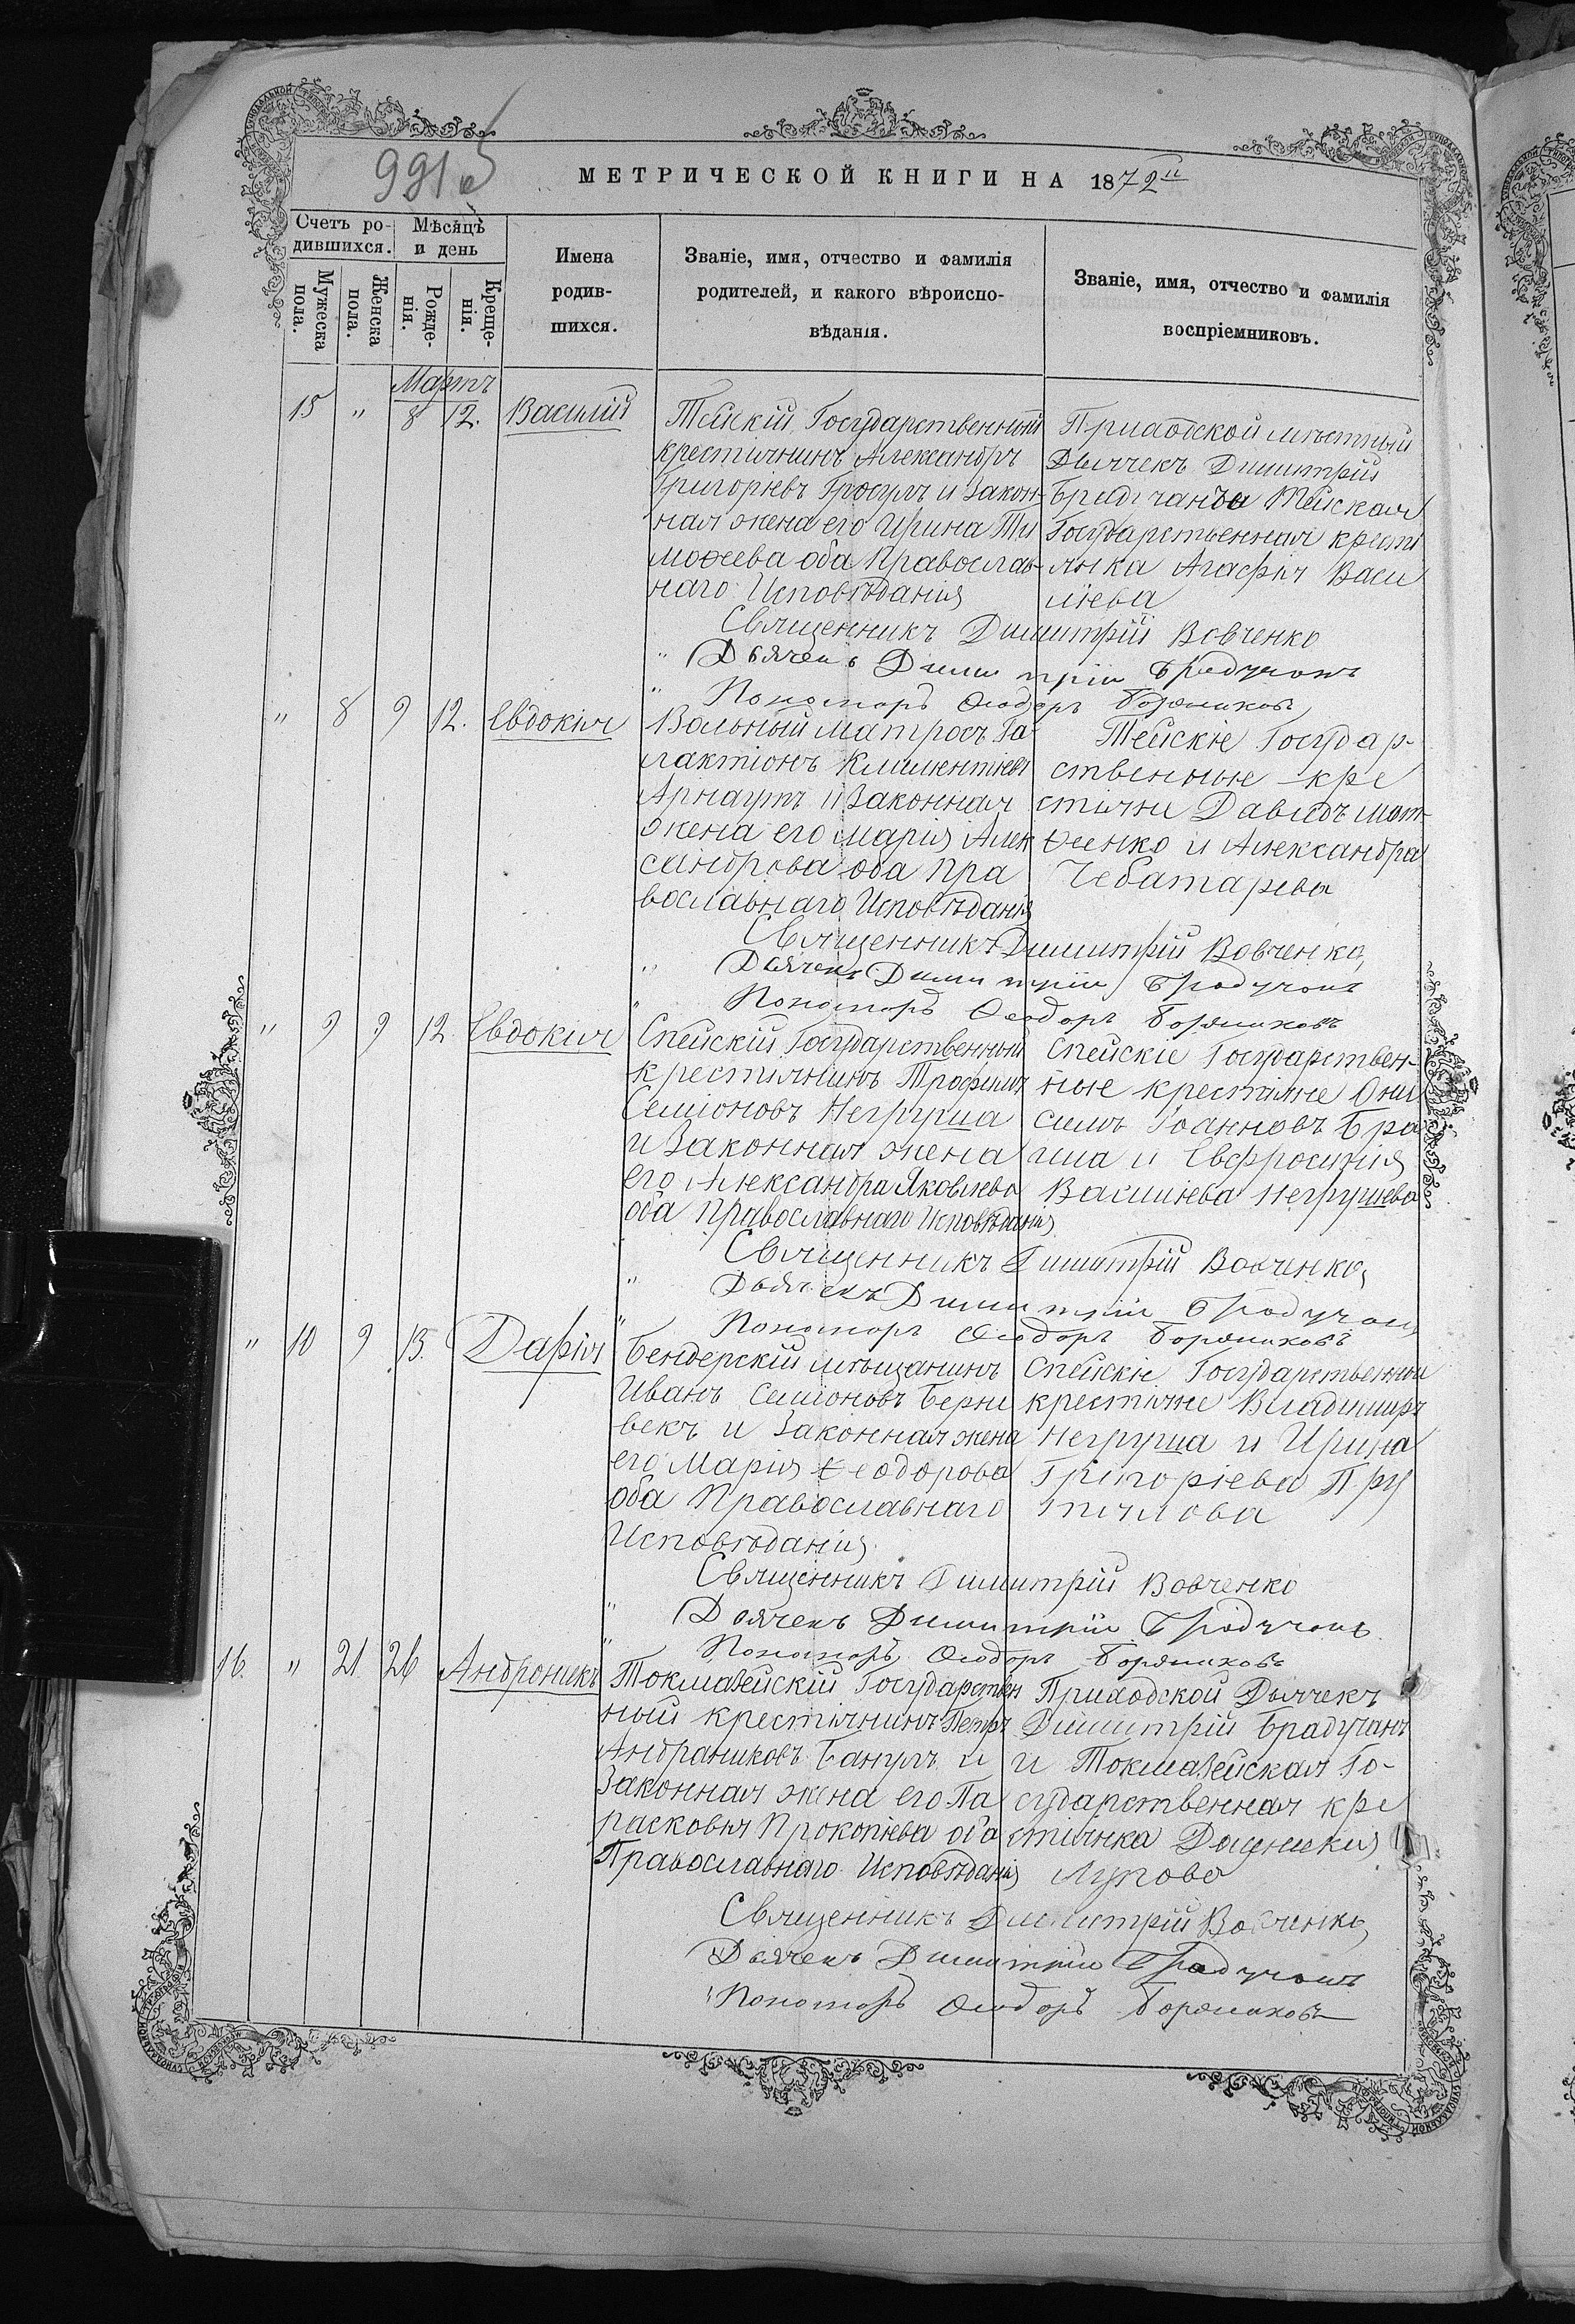 991
МЕТРИЧЕСКОЙ КНИГИ НА 1872й
Счетъ ро-
дившихся.
Мѣсяцъ
и день
Мужеска
пола.
Женска
пола.
Рожде-
нія.
Креще-
нія.
Имена
родив-
шихся.
Званіе, имя, отчество и фамилія
родителей, и какого вѣроиспо-
вѣданія.
Званіе, имя, отчество и фамилія
воспріемниковъ.
Мартъ
15 " 8 12. Василій
Тейскій Государственный
крестіянинъ Александръ
Григоріевъ Гросулъ и закон-
ная жена его Ирина Ти
мофеева оба Православ-
наго Исповѣданія
Приходской мѣстный
Дьячекъ Димитрій
Брадучанъ и Тейская
Государственная крестi
янка Агафія Васи
ліева
Священникъ Димитрій Вовченко
" Дьячекъ Димитрій Брадучанъ
" Пономарь Ѳеодоръ
" 8 9 12. Евдокія
Вольный матросъ Га-
лактіонъ Климентіевъ
Арнаутъ и Законная
жена его Марія Алек
сандрова оба Пра
вославнаго Исповѣданія
Тейскіе Государ-
ственные кре
стіяне Давидъ Мат-
ѳеенко и Александра
Чебатарева
Священникъ Димитрій Вовченко,
" Дьячекъ Димитрій Брадучанъ
" Пономарь Ѳеодоръ
" 9 9 12 Евдокія
Спейскій Государственный
крестіянинъ Трофимъ
Семіоновъ Негруша
и Законная жена
его Александра Яковлева
оба Православнаго Исповѣданія
Спейскіе Государствен-
ные крестіяне Они
симъ Іоанновъ Бра
гиша и Евфросинія
Василіева Негрушева
Священникъ Димитрій Вовченко,
" Дьячекъ Димитрій Брадучанъ
" Пономарь Ѳеодоръ
" 10 9 13. Дарія
Бендерскій мѣщанинъ
Иванъ Семіоновъ Берни
векъ и Законная жена
его Марія Ѳеодорова
оба Православнаго
Исповѣданія
Спейскіе Государственные
крестіяне Владимиръ
Негруша и Ирина
Григоріева Пру
тіялова
Священникъ Димитрій Вовченко
" Дьячекъ Димитрій Брадучанъ
" Пономарь Ѳеодоръ
16. " 21 26 Андроникъ
Токмазейскій Государствен
ный крестіянинъ Петръ
Андрониковъ Банулъ и
Законная жена его Па
расковія Прокопіева оба
Православнаго Исповѣданія
Приходской Дьячекъ
Димитрій Брадучанъ
и Токмазейская Го-
сударственная кре
стіянка Домникія
Лупова
Священникъ Димитрій Вовченко,
Дьячекъ Димитрій Брадучанъ
Пономарь Ѳеодоръ